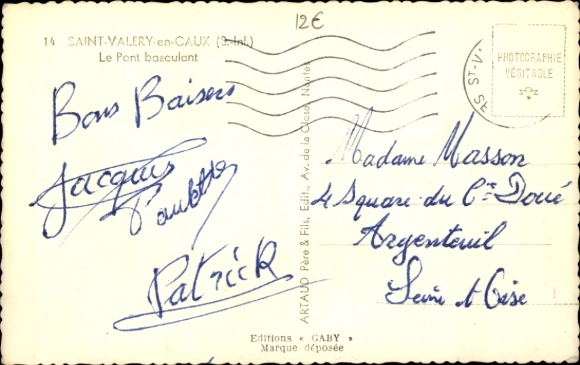 12€
14 SAINT-VALERY-en-CAUX (S.-Inf.)
Le Pont basculant
Bons Baisers
Jacques
Paulette
Patrick
ARTAUD Père & Fils, Edit., Av. de la Close, Nantes
PHOTOGRAPHIE
VÉRITABLE
ST-V
SE
Madame Masson
4 Square du Cᵗ Doué
Argenteuil
Seine et Oise
Editions « GABY »
Marque déposée